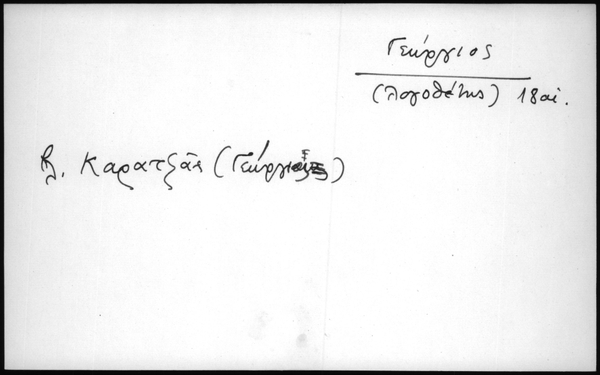 Γεώργιος
(λογοθέτης) 18αἰ.
βλ. Καρατζᾶς (Γεώργιος)